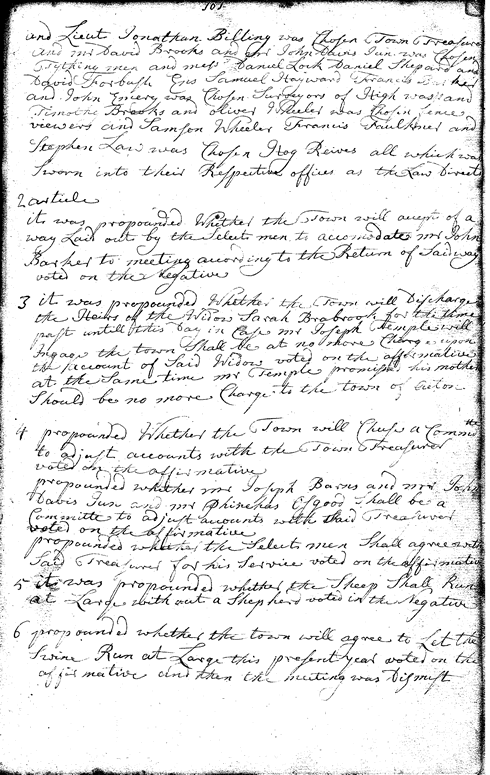 101
and Lieut Jonathan Billing was Chosen Town Treasure
and mr David Brooks and mr John Davis Jun. was Chosen
Tything men and mess Daniel Lock Daniel Shepard and
David Forbush Ens Samuel Hayward Francis Barker
and John Emery was Chosen Surveyors of High ways and
Timothe Brooks and oliver Wheeler was Chosen fence
viewers and Samson Wheeler Francis Faulkner and
Stephen Law was Chosen Hog Reives all which was
Sworn into their Respective offices as the Law Directs
2 article
it was propounded Whether the Town will accept of a
way Laid out by the Selects men to accomodate mr John
Barker to meeting according to the Return of Said way
voted on the Negative
3 it was propounded Whether the Town will Discharge
the Heirs of the Widow Sarah Brabrook for the time
past untill this Day in Case mr Joseph Temple will
Ingage the town Shall be at no more Charge upon
the account of Said Widow voted on the affirmative
at the Same time mr Temple promised his mother
Should be no more Charge to the town of Acton
4 propounded Whether the Town will Chuse a Committe
to adjust accounts with the Town Treasurer
voted on the affirmative
propounded whether mr Joseph Barns and mr John
Davis Jun and mr Phinehas Osgood Shall be a
Committe to adjust accounts with Said Treasurer
voted on the affirmative
propounded whether the Selects men Shall agree with
Said Treasurer for his Service voted on the affirmative
5 it was propounded whether the Sheep Shall Run
at Large with out a Shepherd voted in the Negative
6 propounded whether the town will agree to Let the
Swine Run at Large this present year voted on the
affirmative and then the meeting was Dismist